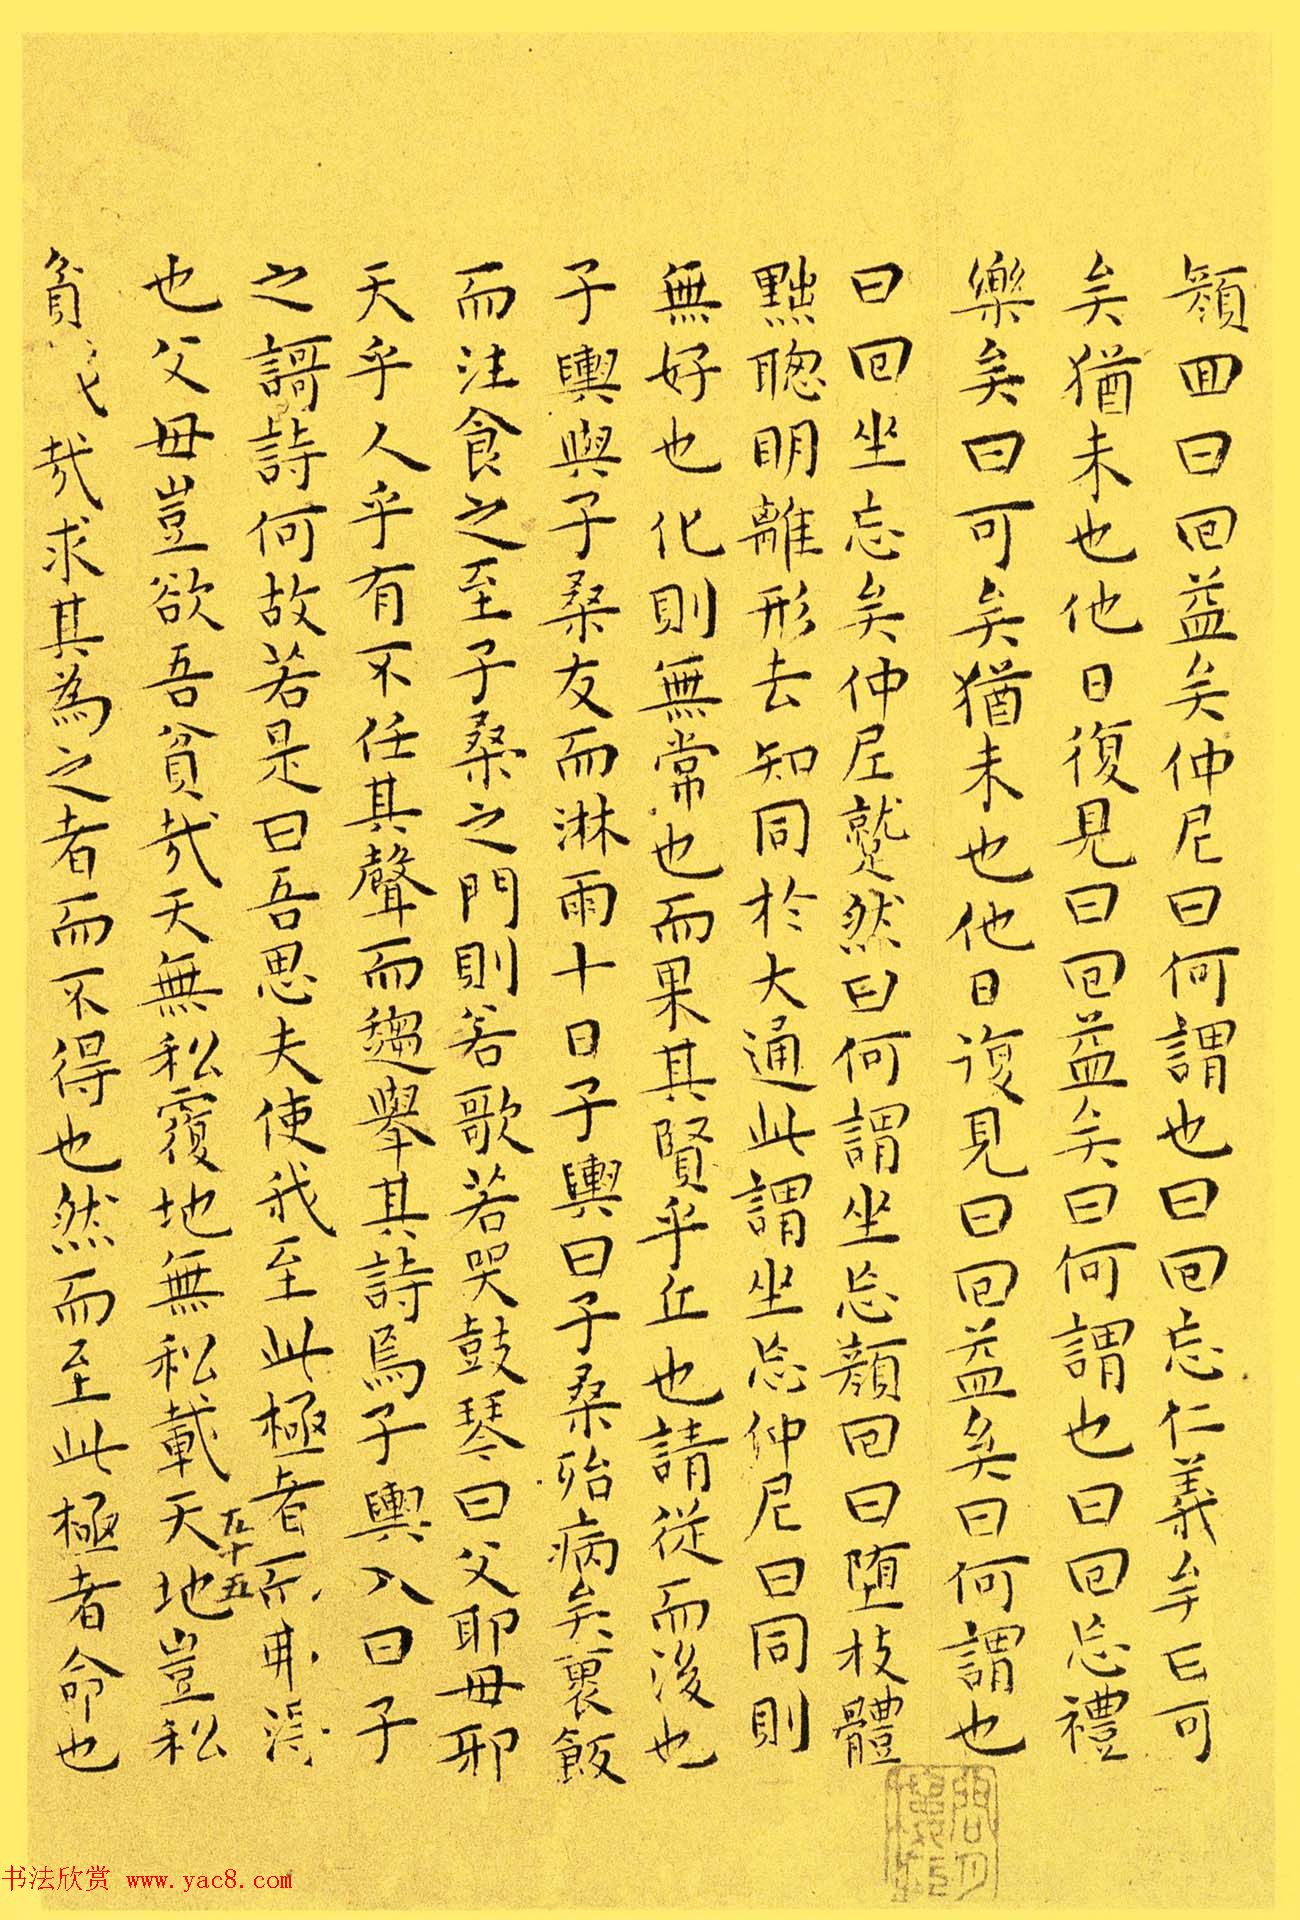 顏回曰回益矣仲尼曰何謂也曰回忘仁義矣曰可
矣猶未也他日復見曰回益矣曰何謂也曰回忘禮
樂矣曰可矣猶未也他日復見曰回益矣曰何謂也
曰回坐忘矣仲尼蹵然曰何謂坐忘顏回曰墮枝體
黜聰明離形去知同於大通此謂坐忘仲尼曰同則
無好也化則無常也而果其賢乎丘也請從而後也
子輿與子桑友而淋雨十日子輿曰子桑殆病矣裹飯
而注食之至子桑之門則若歌若哭鼓琴曰父耶母邪
天乎人乎有不任其聲而趨舉其詩焉子輿入曰子
之謌詩何故若是曰吾思夫使我至此極者而弗得
也父母豈欲吾貧哉天無私覆地無私載天地豈私
貧我哉求其為之者而不得也然而至此極者命也
五十五
书法欣赏 www.yac8.com